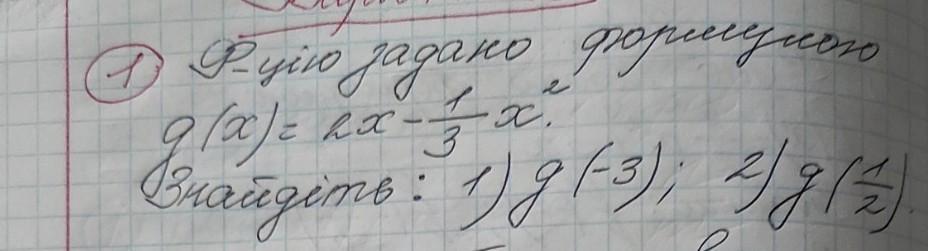 1 Ф-цію задано формулою
g(x) = 2x - 1/3 x².
Знайдіть: 1) g(-3); 2) g(1/2).